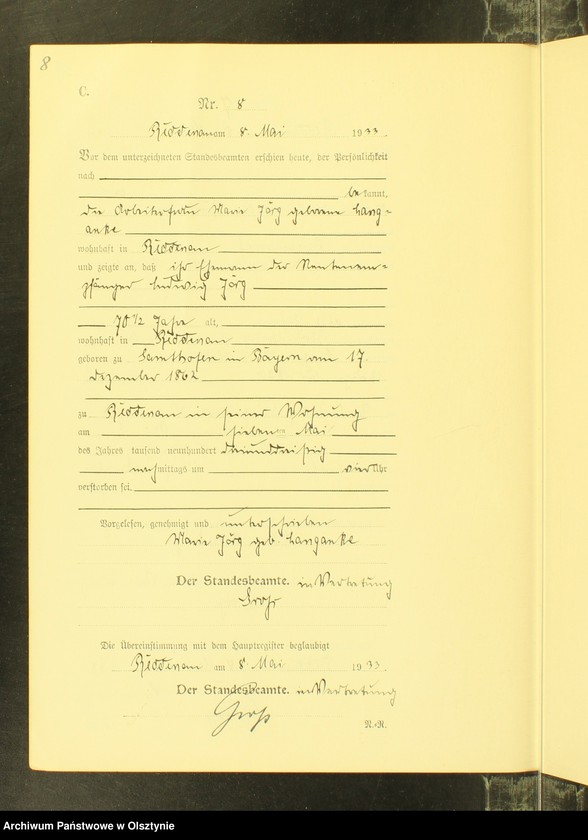 8
C.
Nr. 8
am 8. Mai 1933.
Vor dem unterzeichneten Standesbeamten erschien heute, der Persönlichkeit
nach
be kannt,
die Arbeiterfrau Marie Jörg geborene Lang=
anke
wohnhaft in
und zeigte an, daß ihr Ehemann der Rentenem=
pfänger Ludwig Jörg
70 1/2 Jahre alt,
wohnhaft in
geboren zu in Bayern am 17.
Dezember 1862
zu in seiner Wohnung
am siebenten Mai
des Jahres tausend neunhundert dreiunddreißig
nachmittags um vier Uhr
verstorben sei.
Vorgelesen, genehmigt und unterschrieben
Marie Jörg geb Langanke
Der Standesbeamte. in Vertretung
Die Übereinstimmung mit dem Hauptregister beglaubigt
am 8 Mai 1933.
Der Standesbeamte. in Vertretung
N.-R.
Archiwum Państwowe w Olsztynie